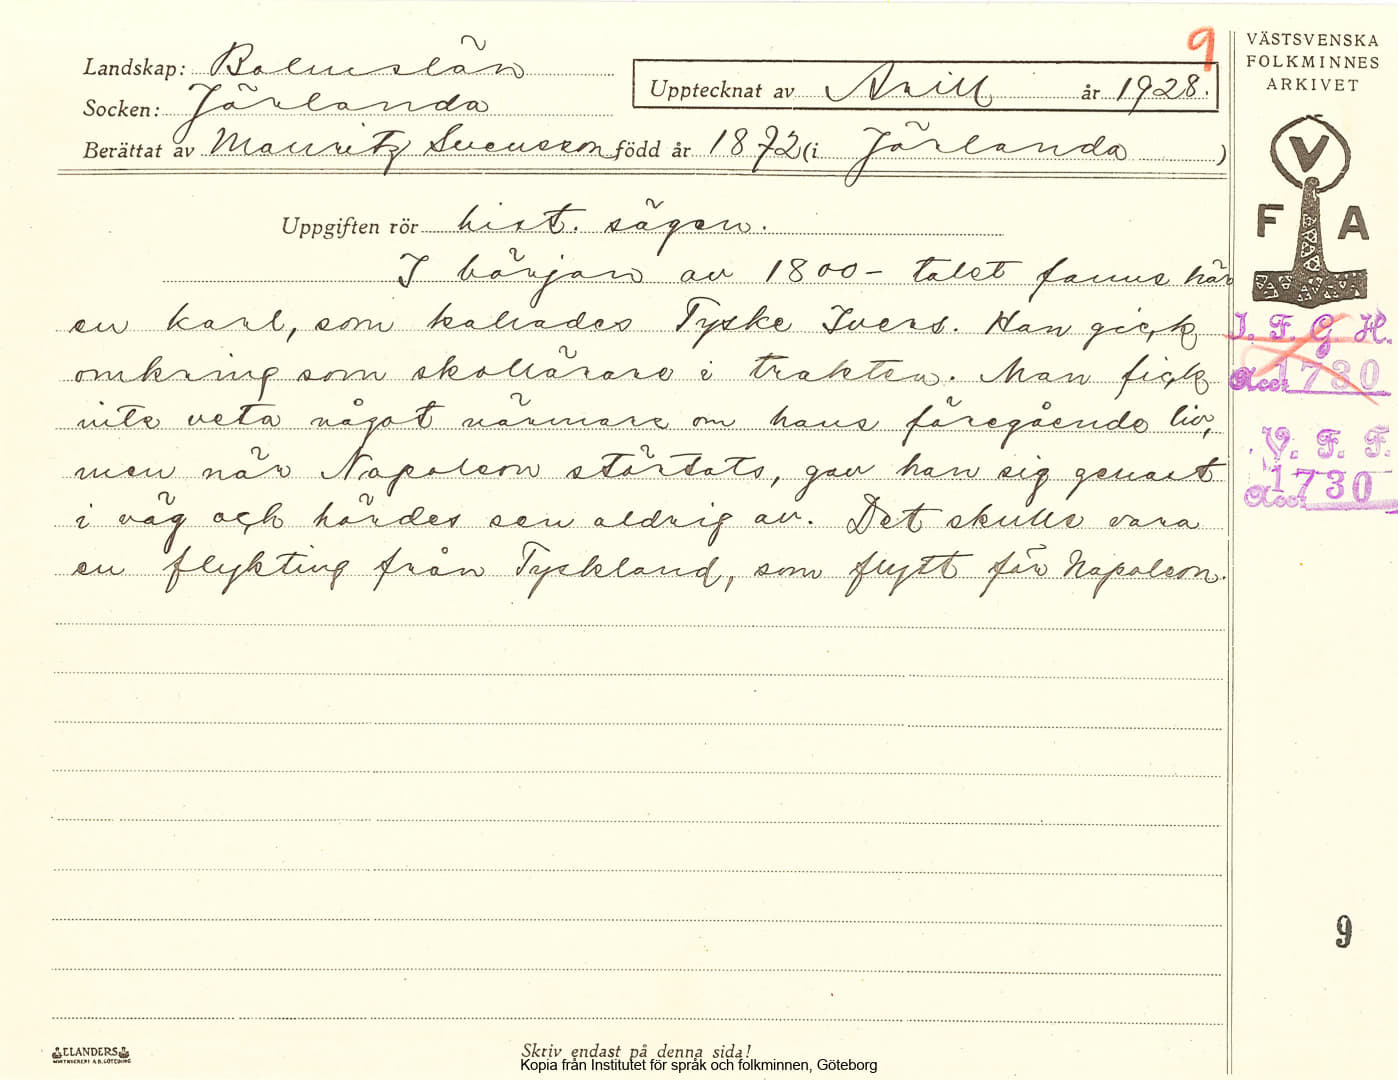 9
VÄSTSVENSKA
FOLKMINNES
ARKIVET
Landskap: Bohuslän
Upptecknat av Arill år 1928.
Socken: Jörlanda
Berättat av Mauritz Svensson född år 1872 (i Jörlanda )
V
F A
Uppgiften rör hist. sägen.
I början av 1800-talet fanns här
en karl, som kallades Tyske Ivers. Han gick
omkring som skollärare i trakten. Man fick
inte veta något närmare om hans föregående liv,
men när Napoleon störtats, gav han sig genast
i väg och hördes sen aldrig av. Det skulle vara
en flykting från Tyskland, som flytt för Napoleon.
I. F. G. H.
Acc. 1730
V. F. F.
Acc. 1730
9
ELANDERS
BOKTRYCKERI A.B. GÖTEBORG
Skriv endast på denna sida!
Kopia från Institutet för språk och folkminnen, Göteborg